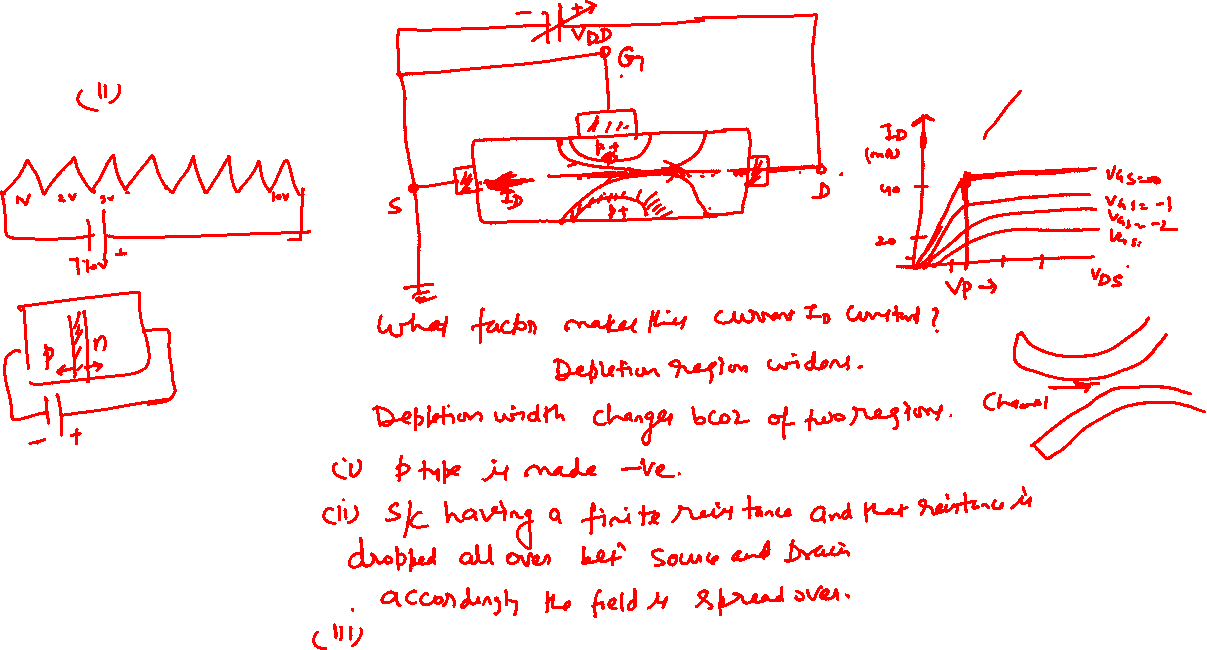 - +
VDD
G
(II)
p+
ID
S
D
p+
1V 2V 3V 10V
+
p n
- +
ID
(mA)
40
20
VGS=0
VGS= -1
VGS= -2
VGS=
VP →
VDS
What factor makes this current ID constant?
Depletion region widens.
Depletion width changes bcoz of two regions.
Channel
(i) p type is made -ve.
(ii) S/C having a finite resistance and that resistance is
dropped all over bet^n Source and Drain
accordingly the field is spread over.
(iii)